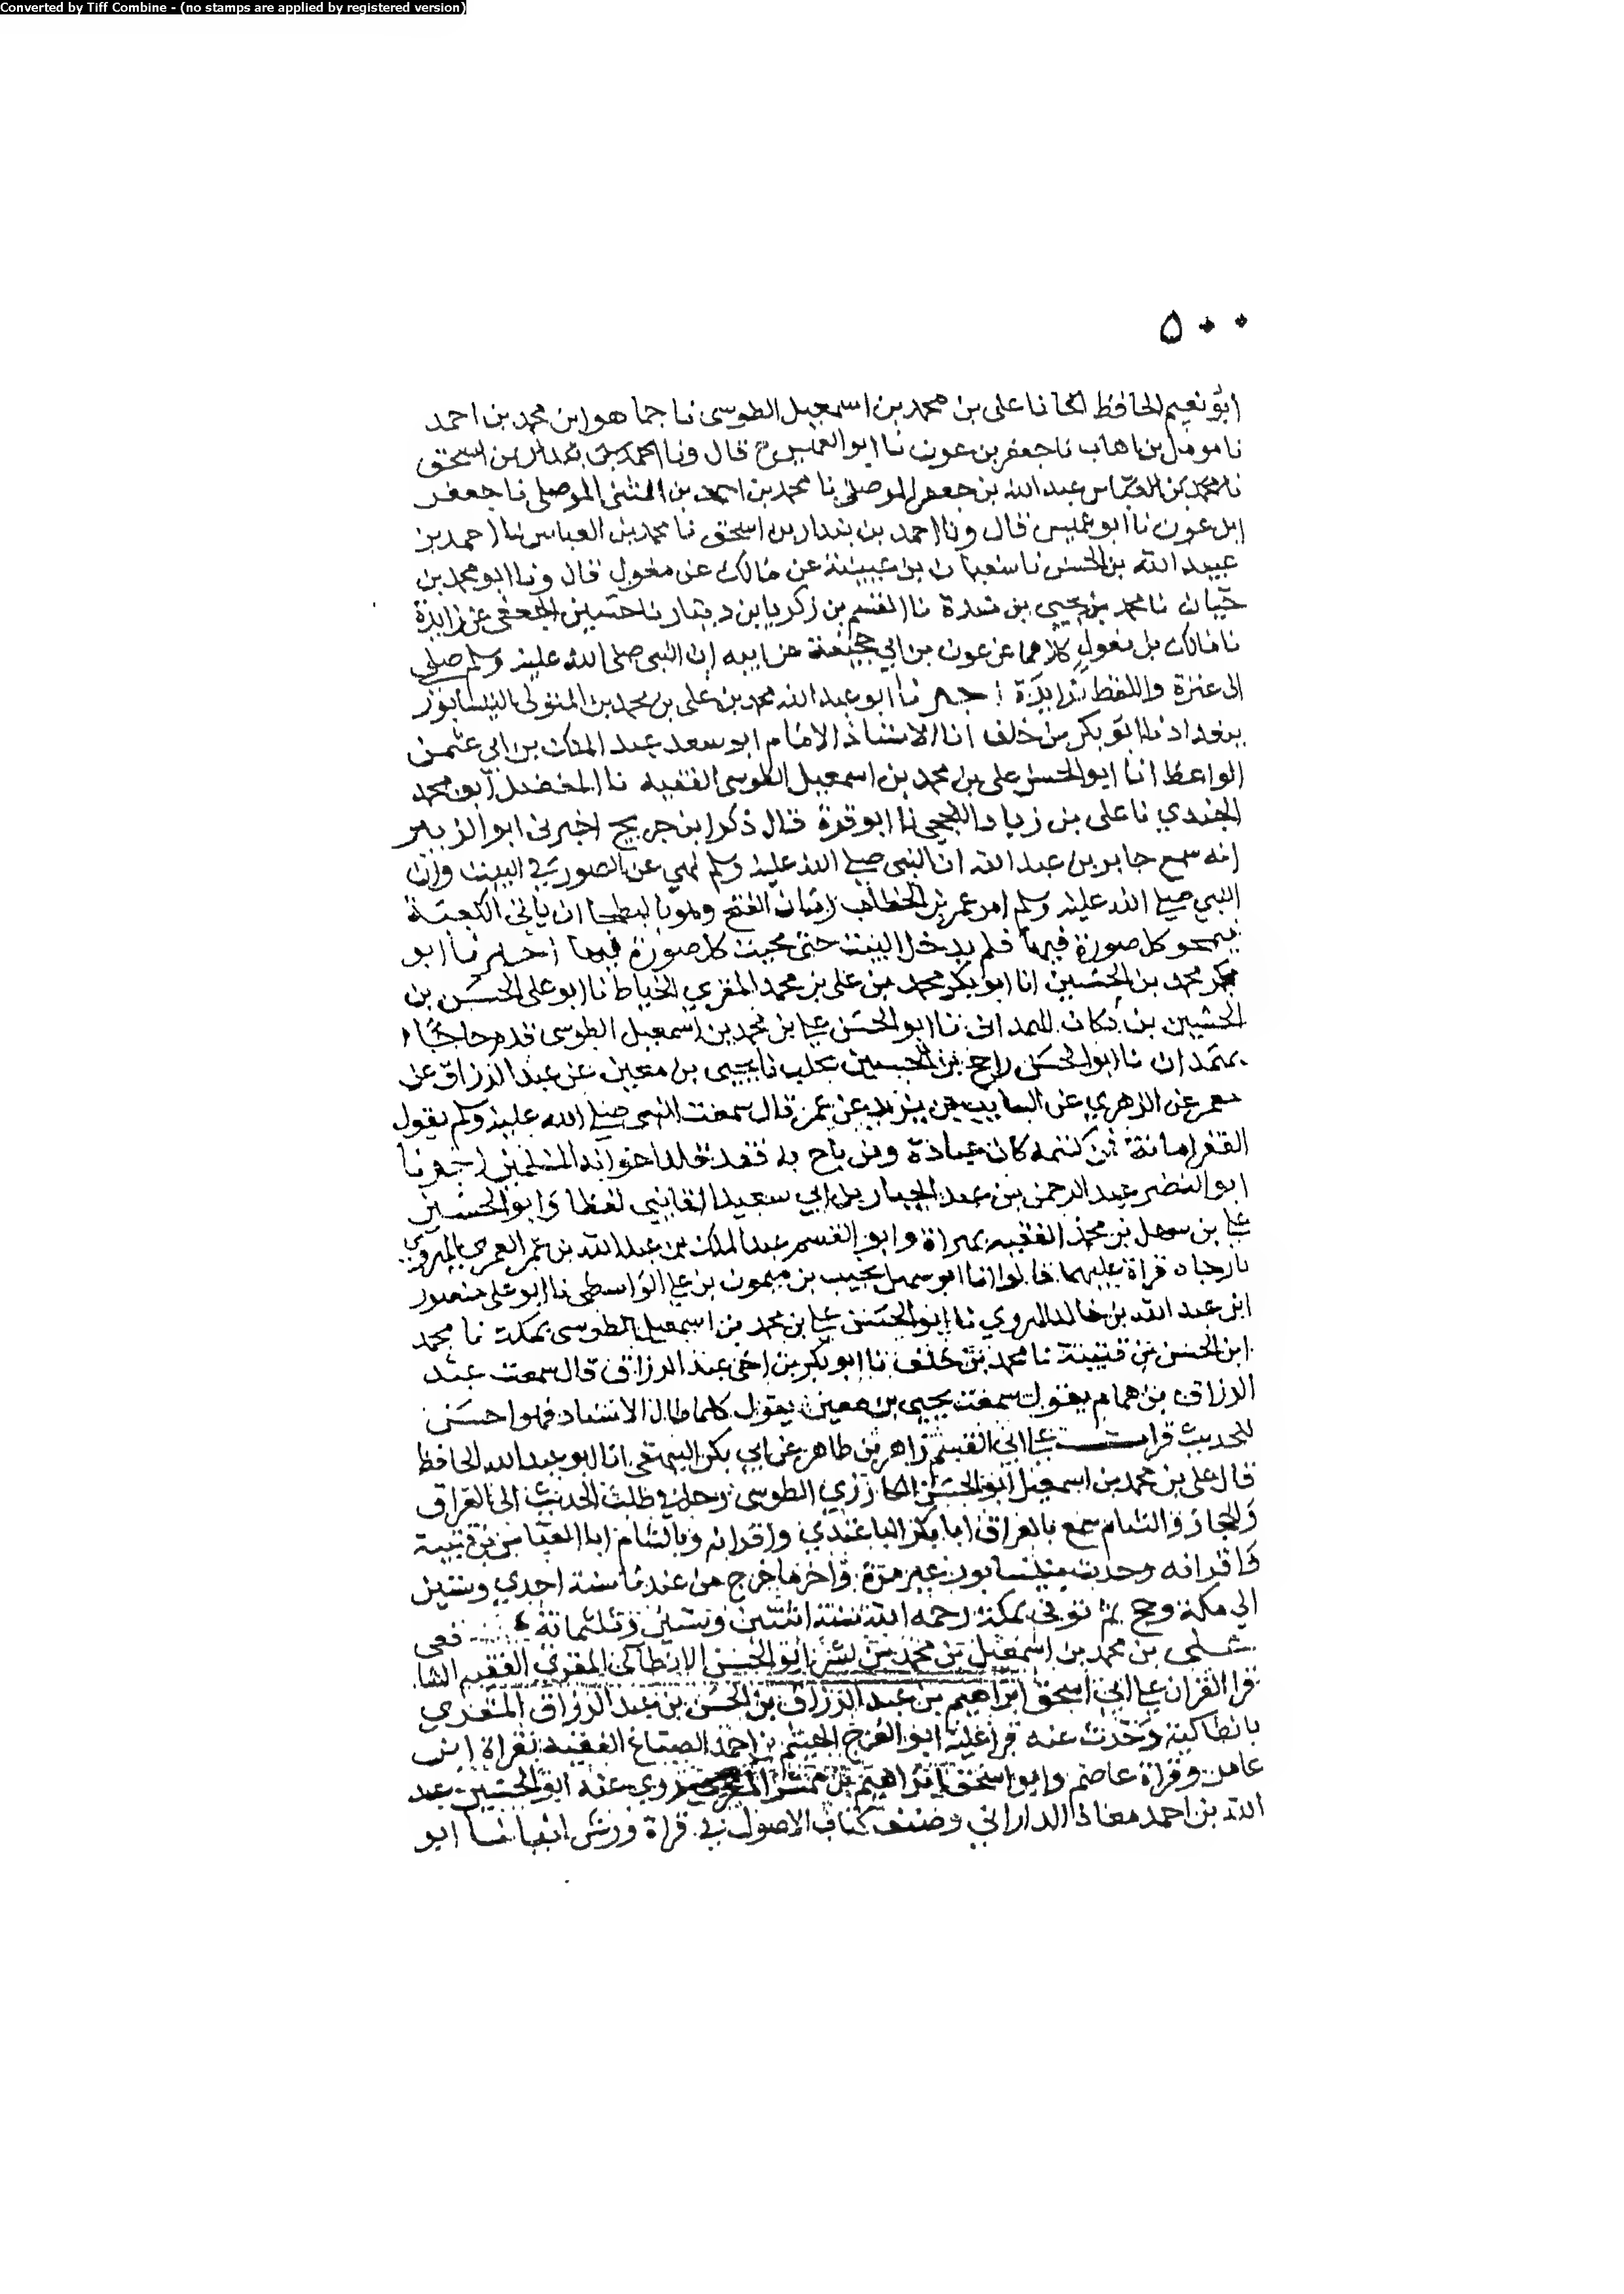 Converted by Tiff Combine - (no stamps are applied by registered version)
٥٠٠
ابو نعيم الحافظ انا علي بن محمد بن اسمعيل الطوسي نا جماهر ابن محمد بن احمد
نا مومل بن اهاب نا جعفر بن عون نا ابو العميس ح قال ونا احمد بن بندار بن اسحق
نا محمد بن العباس عبد الله بن جعفر الموصلي نا محمد بن احمد بن المثنى الموصلي نا جعفر
ابن عون نا ابو عميس قال ونا احمد بن بندار بن اسحق نا محمد بن العباس نا احمد بن
عبيد الله بن الحسن نا سفيان بن عيينة عن مالك عن مغول قال ونا ابو محمد بن
حيان نا محمد بن يحيى بن مندة نا القسم بن زكريا بن دينار نا حسين الجعفي عن زايدة
نا مالك بن مغول كلاهما عن عون بن ابي جحيفة عن ابيه ان النبي صلى الله عليه وسلم صلى
الى عنزة واللفظ لزايدة اخبرنا ابو عبد الله محمد بن علي بن محمد بن المتولي النيسابوري
ببغداد نا ابو بكر بن خلف انا الاستاذ الامام ابو سعد عبد الملك بن ابي عثمن
الواعظ انا ابو الحسن علي بن محمد بن اسمعيل الطوسي الفقيه نا المفضل ابو محمد
الجندي نا علي بن زياد اللحجي نا ابو قرة قال ذكر ابن جريج اخبرني ابو الزبير
انه سمع جابر بن عبد الله ان النبي صلى الله عليه وسلم نهى عن الصور في البيت وان
النبي صلى الله عليه وسلم امر عمر بن الخطاب زمان الفتح وهو بالبطحا ان ياتي الكعبة
فيمحو كل صورة فيها فلم يدخل البيت حتى محيت كل صورة فيها اخبرنا ابو
بكر محمد بن الحسين انا ابو بكر محمد بن علي بن محمد المقري الخياط نا ابو علي الحسن بن
الحسين بن حمكان الهمداني نا ابو الحسن علي بن محمد بن اسمعيل الطوسي قدم حاجا
بهمدان نا ابو الحسن راجح بن الحسين بحلب نا يحيى بن معين عن عبد الرزاق عن
معمر عن الزهري عن السايب بن يزيد عن عمر قال سمعت النبي صلى الله عليه وسلم يقول
الفقر امانة فمن كتمه كان عبادة ومن باح به فقد قلد اخوانه المسلمين اخبرنا
ابو النضر عبد الرحمن بن عبد الجبار بن ابي سعيد الفاني لفظا وابو الحسين
علي بن سهل بن محمد الفقيه بهراة وابو القسم عبد الملك بن عبد الله بن عمر العمري الهروي
بارجاه قراة عليهما قالوا انا ابو سهل نجيب بن ميمون بن علي الواسطي نا ابو علي منصور
ابن عبد الله بن خالد الهروي نا ابو الحسن علي بن محمد بن اسمعيل الطوسي بمكة نا محمد
ابن الحسن بن قتيبة نا محمد بن خلف نا ابو بكر بن اخي عبد الرزاق قال سمعت عبد
الرزاق بن همام يقول سمعت يحيى بن معين يقول كلما طال الاسناد فهو احسن
للحديث قرات على ابي القسم زاهر بن طاهر عن ابي بكر البيهقي انا ابو عبد الله الحافظ
قال علي بن محمد بن اسمعيل ابو الحسن الكارزي الطوسي رحل في طلب الحديث الى العراق
والحجاز والشام سمع بالعراق ابا بكر الباغندي واقرانه وبالشام ابا العباس بن قتيبة
واقرانه وحدث بنيسابور غير مرة واخر ما خرج من عندنا سنة احدي وستين
الى مكة وحج ثم توفي بمكة رحمه الله سنة اثنتين وستين وثلثمائة
علي بن محمد بن اسمعيل بن محمد بن بشر ابو الحسن الانطاكي المقري الفقيه الشا فعي
قرا القران على ابي اسحق ابراهيم بن عبد الرزاق بن الحسن بن عبد الرزاق المقري
بانطاكية وحدث عنه قرا عليه ابو الفرج الهيثم بن احمد الصباغ الفقيه بقراة ابن
عامر وقراة عاصم وابو اسحق ابراهيم بن مبشر المقري روى عنه ابو الحسين عبد
الله بن احمد معاذ الداراني وصنف كتاب الاصول في قراة ورش انبانا ابو